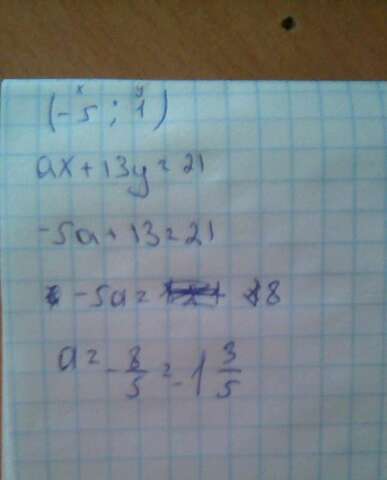 x y
(-5; 1)
ax+13y=21
-5a+13=21
-5a= 8
a=-8/5=-1 3/5